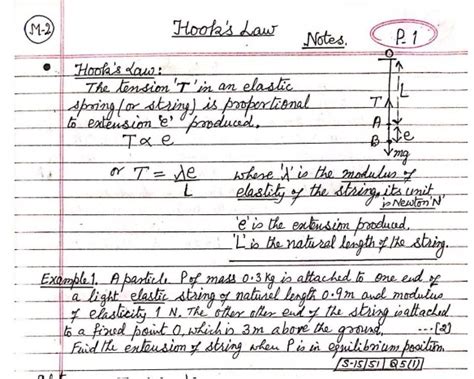 M-2
Hook's Law
Notes.
P.1
Hook's Law:
The tension 'T' in an elastic
spring (or string) is proportional
to extension 'e' produced.
T ∝ e
O
L
T
A
e
B
mg
or T = λe/L
where 'λ' is the modulus of
elastity of the string, its unit
is Newton 'N'
'e' is the extension produced.
'L' is the natural length of the string.
Example 1. A particle P of mass 0.3 kg is attached to one end of
a light elastic string of natural length 0.9 m and modulus
of elasticity 1 N. The other other end of the string is attached
to a fixed point O, which is 3m above the ground.
Find the extension of string when P is in equilibrium position. ---[2]
S-15/51/Q5(i)